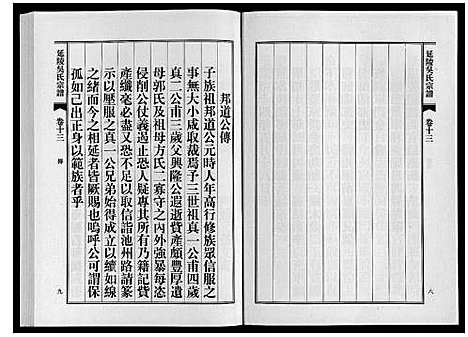 延陵吳氏宗譜
卷十三
八
邦道公傳
子族祖邦道公元時人年高行修族眾信服之
事無大小咸取裁焉予三世祖真一公甫四歲
真二公甫三歲父興隆公遐逝貲產頗豐厚遺
母郭氏及祖母方氏二寡守之內外強暴每恣
侵削公仗義遏止恐人疑專其所有乃籍記貲
產纖毫必盡又恐不足以取信詣池州路請篆
示以壓服之真一公兄弟始得成立以續如線
之緒而今之相延者皆厥賜也嗚呼公可謂保
孤如己出正身以範族者乎
延陵吳氏宗譜
卷十三
傳
九